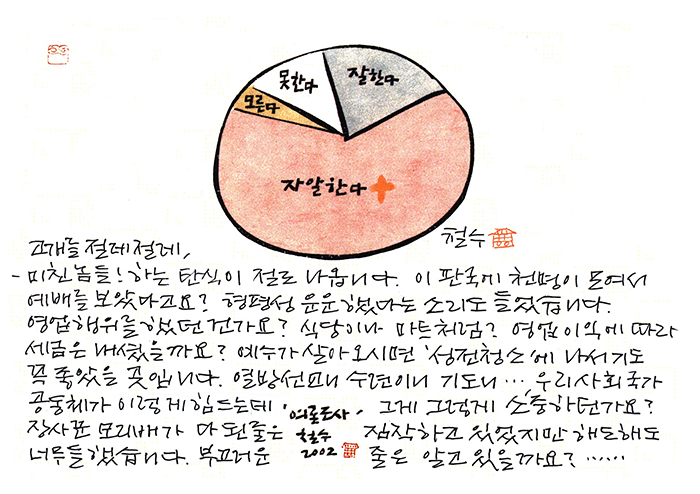 못한다
잘한다
모른다
자알한다
철수
고개를 절레절레,
- 미친놈들! 하는 탄식이 절로 나옵니다. 이 판국에 천명이 모여서
예배를 보았다고요? 형평성 운운했다는 소리도 들었습니다.
영업행위를 하였던 건가요? 식당이나 마트처럼? 영업이익에 따라
세금은 내셨을까요? 예수가 살아오시면 '성전청소'에 나서기도
꼭 죽았을 곳입니다. 열방선교니 수련이니 기도니… 우리사회국가
공동체가 이렇게 힘드는데 '여론조사' 그게 그렇게 소중하던가요?
장사꾼 모리배가 다 된줄은 철수 짐작하고 있었지만 해도해도
너무들했습니다. 부끄러운 2002 줄은 알고 있을까요? ……